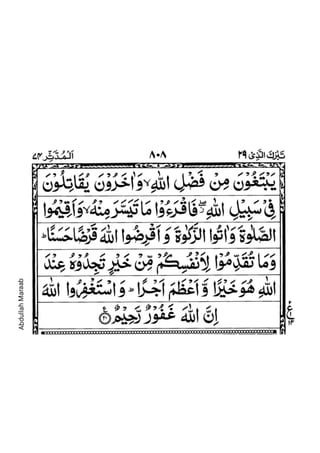 تَبٰرَكَ الَّذِىْ ٢٩ ٨٠٨ اَلْمُدَّثِّر ٧٤
يَبْتَغُوْنَ مِنْ فَضْلِ اللّٰهِ ۙ وَاٰخَرُوْنَ يُقَاتِلُوْنَ
فِىْ سَبِيْلِ اللّٰهِ ۖ فَاقْرَءُوْا مَا تَيَسَّرَ مِنْهُ ۙ وَاَقِيْمُوا
الصَّلٰوةَ وَاٰتُوا الزَّكٰوةَ وَ اَقْرِضُوا اللّٰهَ قَرْضًا حَسَنًا ؕ
وَمَا تُقَدِّمُوْا لِاَنْفُسِكُمْ مِّنْ خَيْرٍ تَجِدُوْهُ عِنْدَ
اللّٰهِ هُوَ خَيْرًا وَّ اَعْظَمَ اَجْرًا ؕ وَ اسْتَغْفِرُوا اللّٰهَ
اِنَّ اللّٰهَ غَفُوْرٌ رَّحِيْمٌ ۝٢٠
Abdullah Maraab